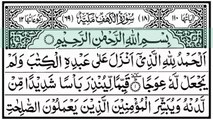 سُوْرَةُ الْكَهْفِ مَكِّيَّةٌ
بِسْمِ اللّٰهِ الرَّحْمٰنِ الرَّحِيْمِ
اَلْحَمْدُ لِلّٰهِ الَّذِيْٓ اَنْزَلَ عَلٰى عَبْدِهِ الْكِتٰبَ وَلَمْ
يَجْعَلْ لَّهٗ عِوَجًا قَيِّمًا لِّيُنْذِرَ بَاْسًا شَدِيْدًا مِّنْ
لَّدُنْهُ وَيُبَشِّرَ الْمُؤْمِنِيْنَ الَّذِيْنَ يَعْمَلُوْنَ الصّٰلِحٰتِ